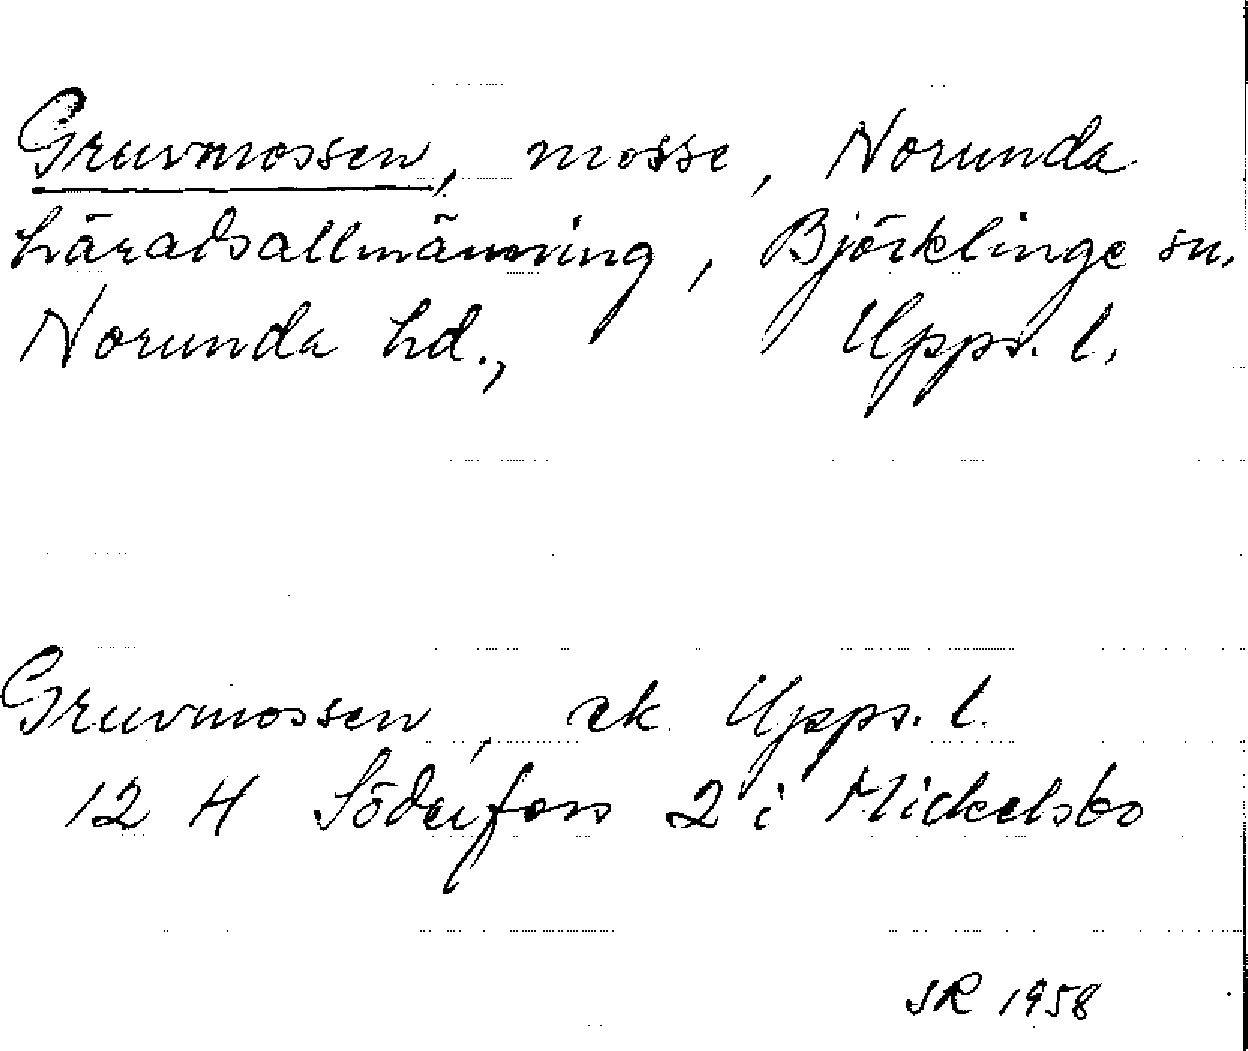 Gruvmossen, mosse, Norunda
häradsallmänning, Björklinge sn,
Norunda hd., Upps. l.
Gruvmossen, ek Upps. l.
12 H Söderfors 2 i Mickelsbo
SR 1958